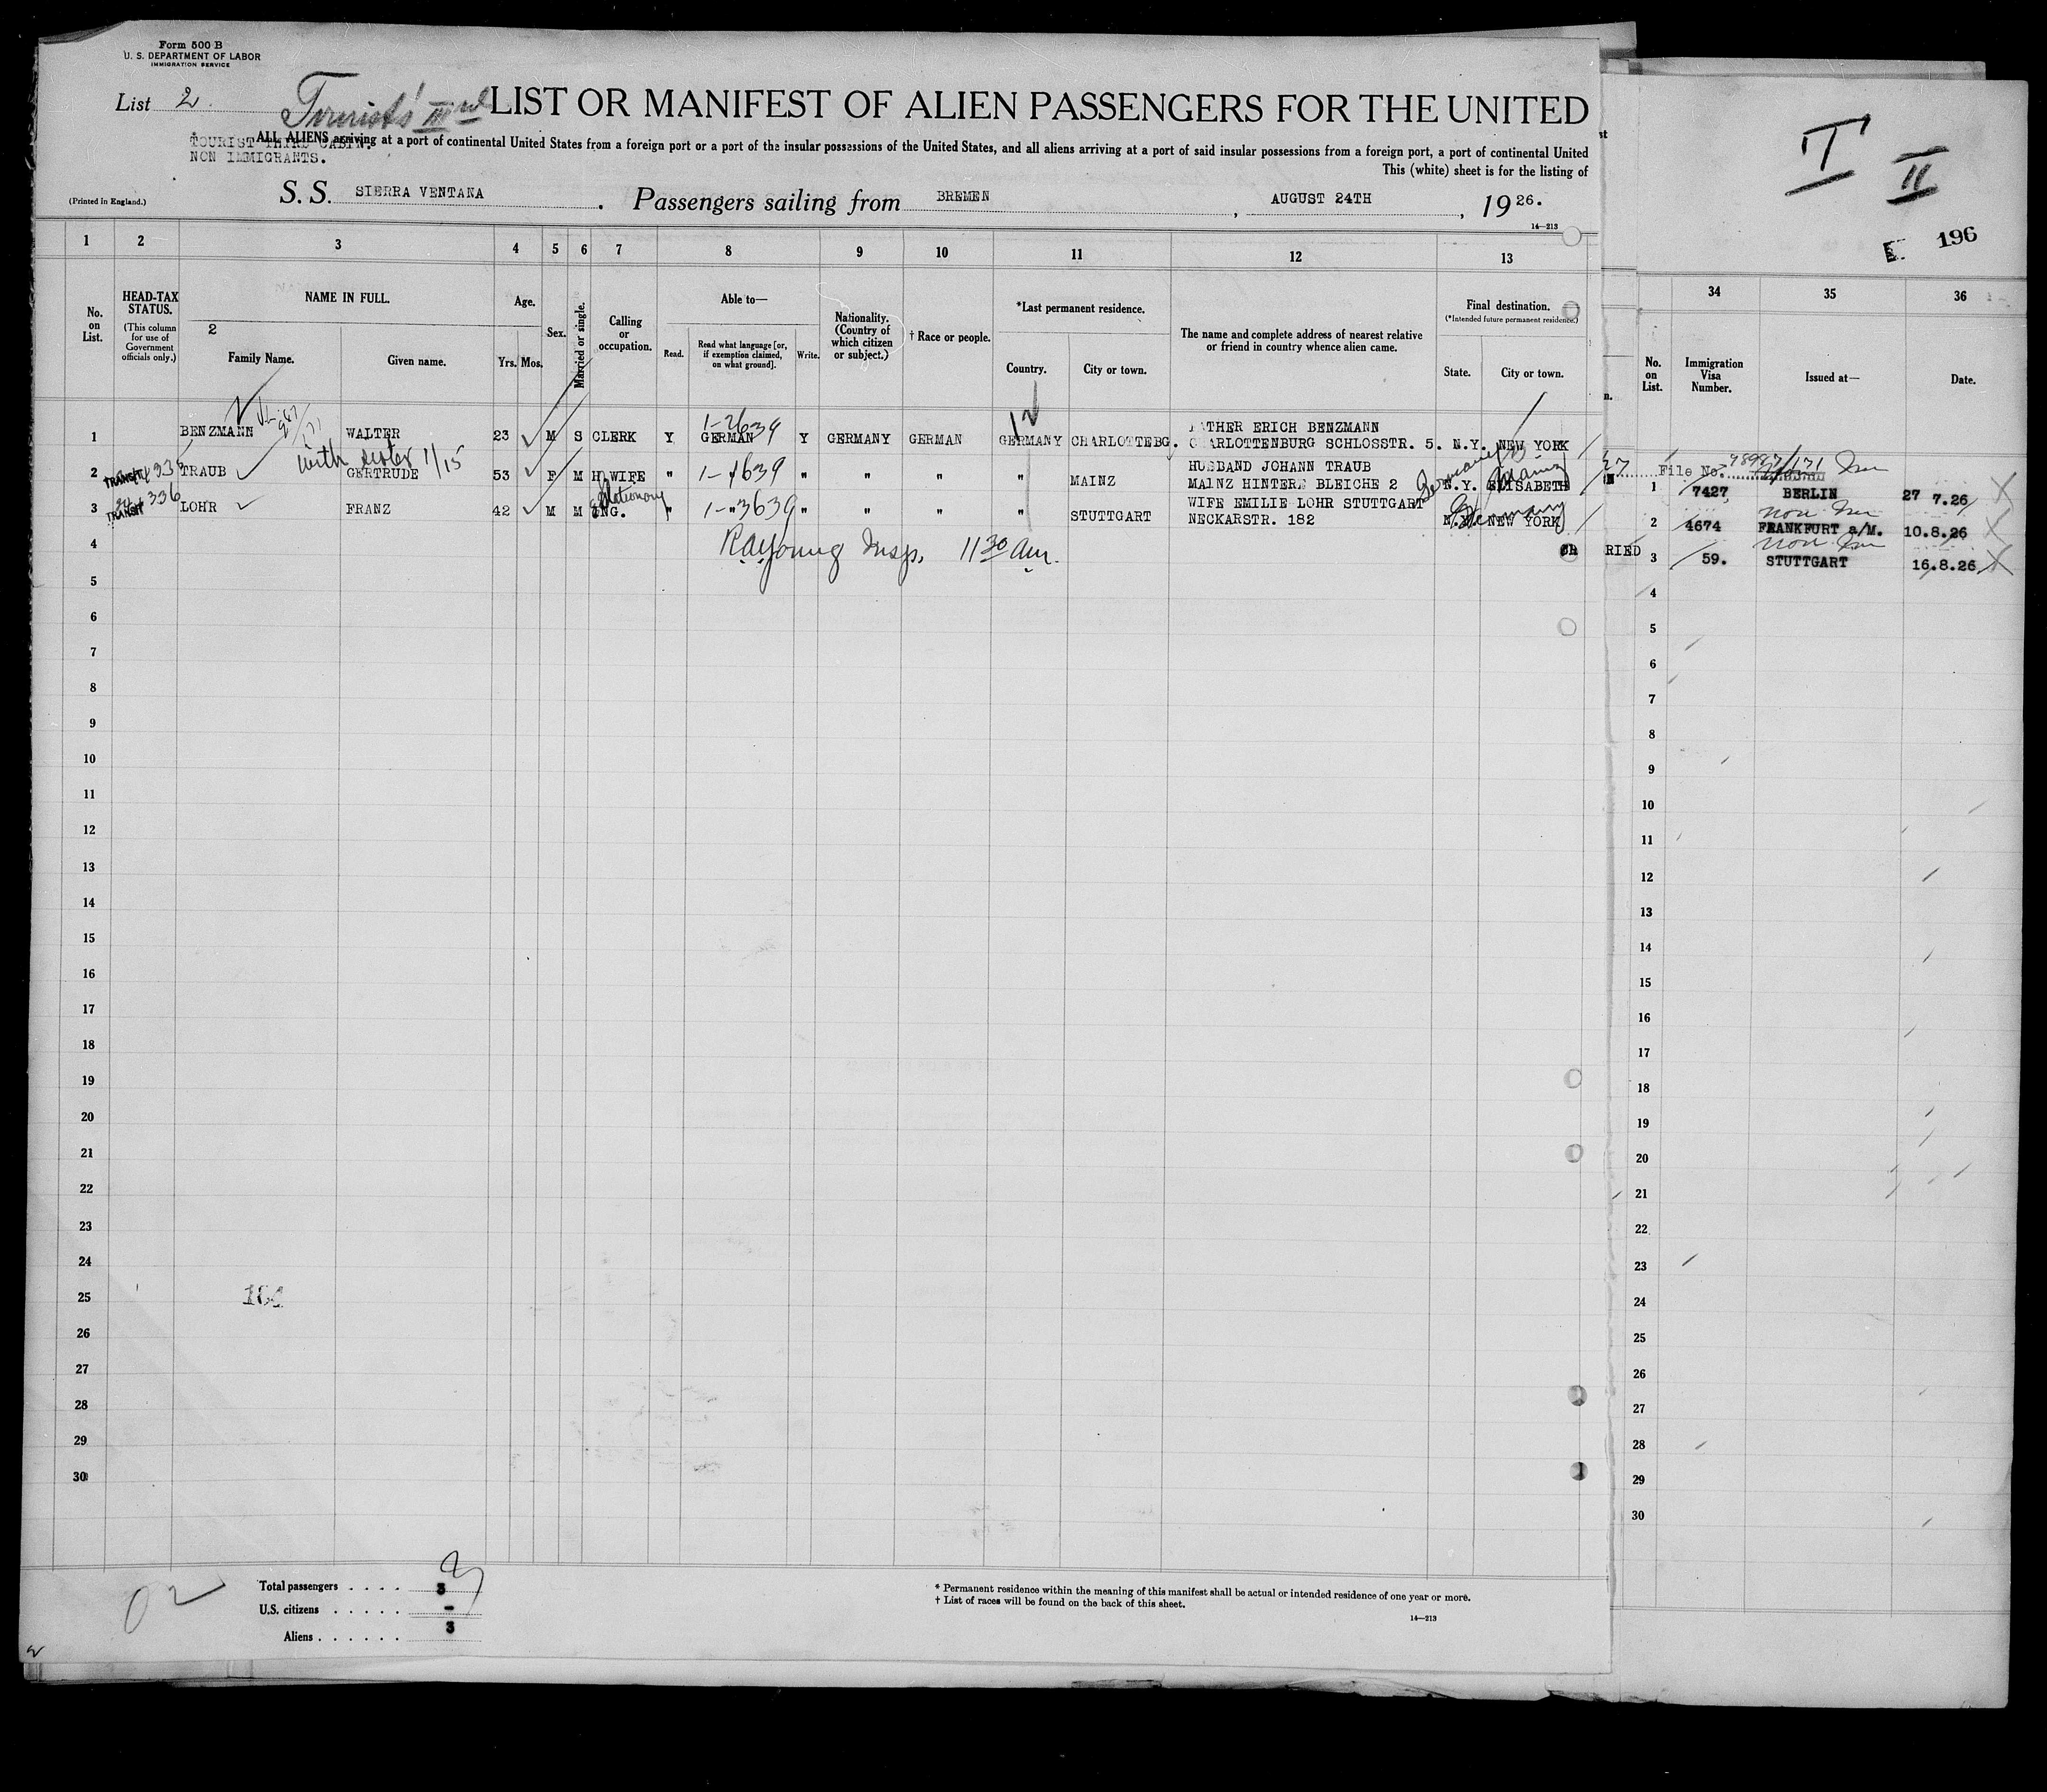 Form 500 B
U. S. DEPARTMENT OF LABOR
IMMIGRATION SERVICE
List 2
Tourists' III rd
LIST OR MANIFEST OF ALIEN PASSENGERS FOR THE UNITED
ALL ALIENS arriving at a port of continental United States from a foreign port or a port of the insular possessions of the United States, and all aliens arriving at a port of said insular possessions from a foreign port, a port of continental United
TOURIST THIRD CABIN.
NON IMMIGRANTS.
This (white) sheet is for the listing of
(Printed in England.)
S. S. SIERRA VENTANA . Passengers sailing from BREMEN , AUGUST 24TH , 1926.
14—213
I
II
196
1 2 3 4 5 6 7 8 9 10 11 12 13
34 35 36
No. on List.
HEAD-TAX STATUS.
(This column for use of Government officials only.)
NAME IN FULL.
2
Family Name.
Given name.
Age.
Yrs. Mos.
Sex.
Married or single.
Calling or occupation.
Able to—
Read.
Read what language [or, if exemption claimed, on what ground].
Write.
Nationality. (Country of which citizen or subject.)
† Race or people.
*Last permanent residence.
Country.
City or town.
The name and complete address of nearest relative or friend in country whence alien came.
Final destination.
(*Intended future permanent residence.)
State.
City or town.
No. on List.
Immigration Visa Number.
Issued at—
Date.
1-2639
FATHER ERICH BENZMANN
1 BENZMANN WALTER 23 M S CLERK Y GERMAN Y GERMANY GERMAN GERMANY CHARLOTTEBG. CHARLOTTENBURG SCHLOSSTR. 5. N.Y. NEW YORK
with sister 1/15
File No.
1 7427 BERLIN 27 7.26
HUSBAND JOHANN TRAUB
2 TRANSIT 335 TRAUB GERTRUDE 53 F M H.WIFE " 1-4639 " " " " MAINZ MAINZ HINTERE BLEICHE 2 N.Y. ELISABETH
Germany Mainz
non Im
2 4674 FRANKFURT a/M. 10.8.26
Stationary
WIFE EMILIE LOHR STUTTGART
3 TRANSIT 336 LOHR FRANZ 42 M M ENG. " 1-"3639 " " " " STUTTGART NECKARSTR. 182 N.Y. NEW YORK
Germany
non Im
3 59. STUTTGART 16.8.26
4 RaYoung Insp. 11 30 am.
RIED
4
5
6
7
8
9
10
11
12
13
14
15
16
17
18
19
20
21
22
23
24
25
26
27
28
29
30
5
6
7
8
9
10
11
12
13
14
15
16
17
18
19
20
21
22
23
24
25
26
27
28
29
30
02
Total passengers . . . . 3
3
U.S. citizens . . . . . -
Aliens . . . . . . 3
* Permanent residence within the meaning of this manifest shall be actual or intended residence of one year or more.
† List of races will be found on the back of this sheet.
14—213